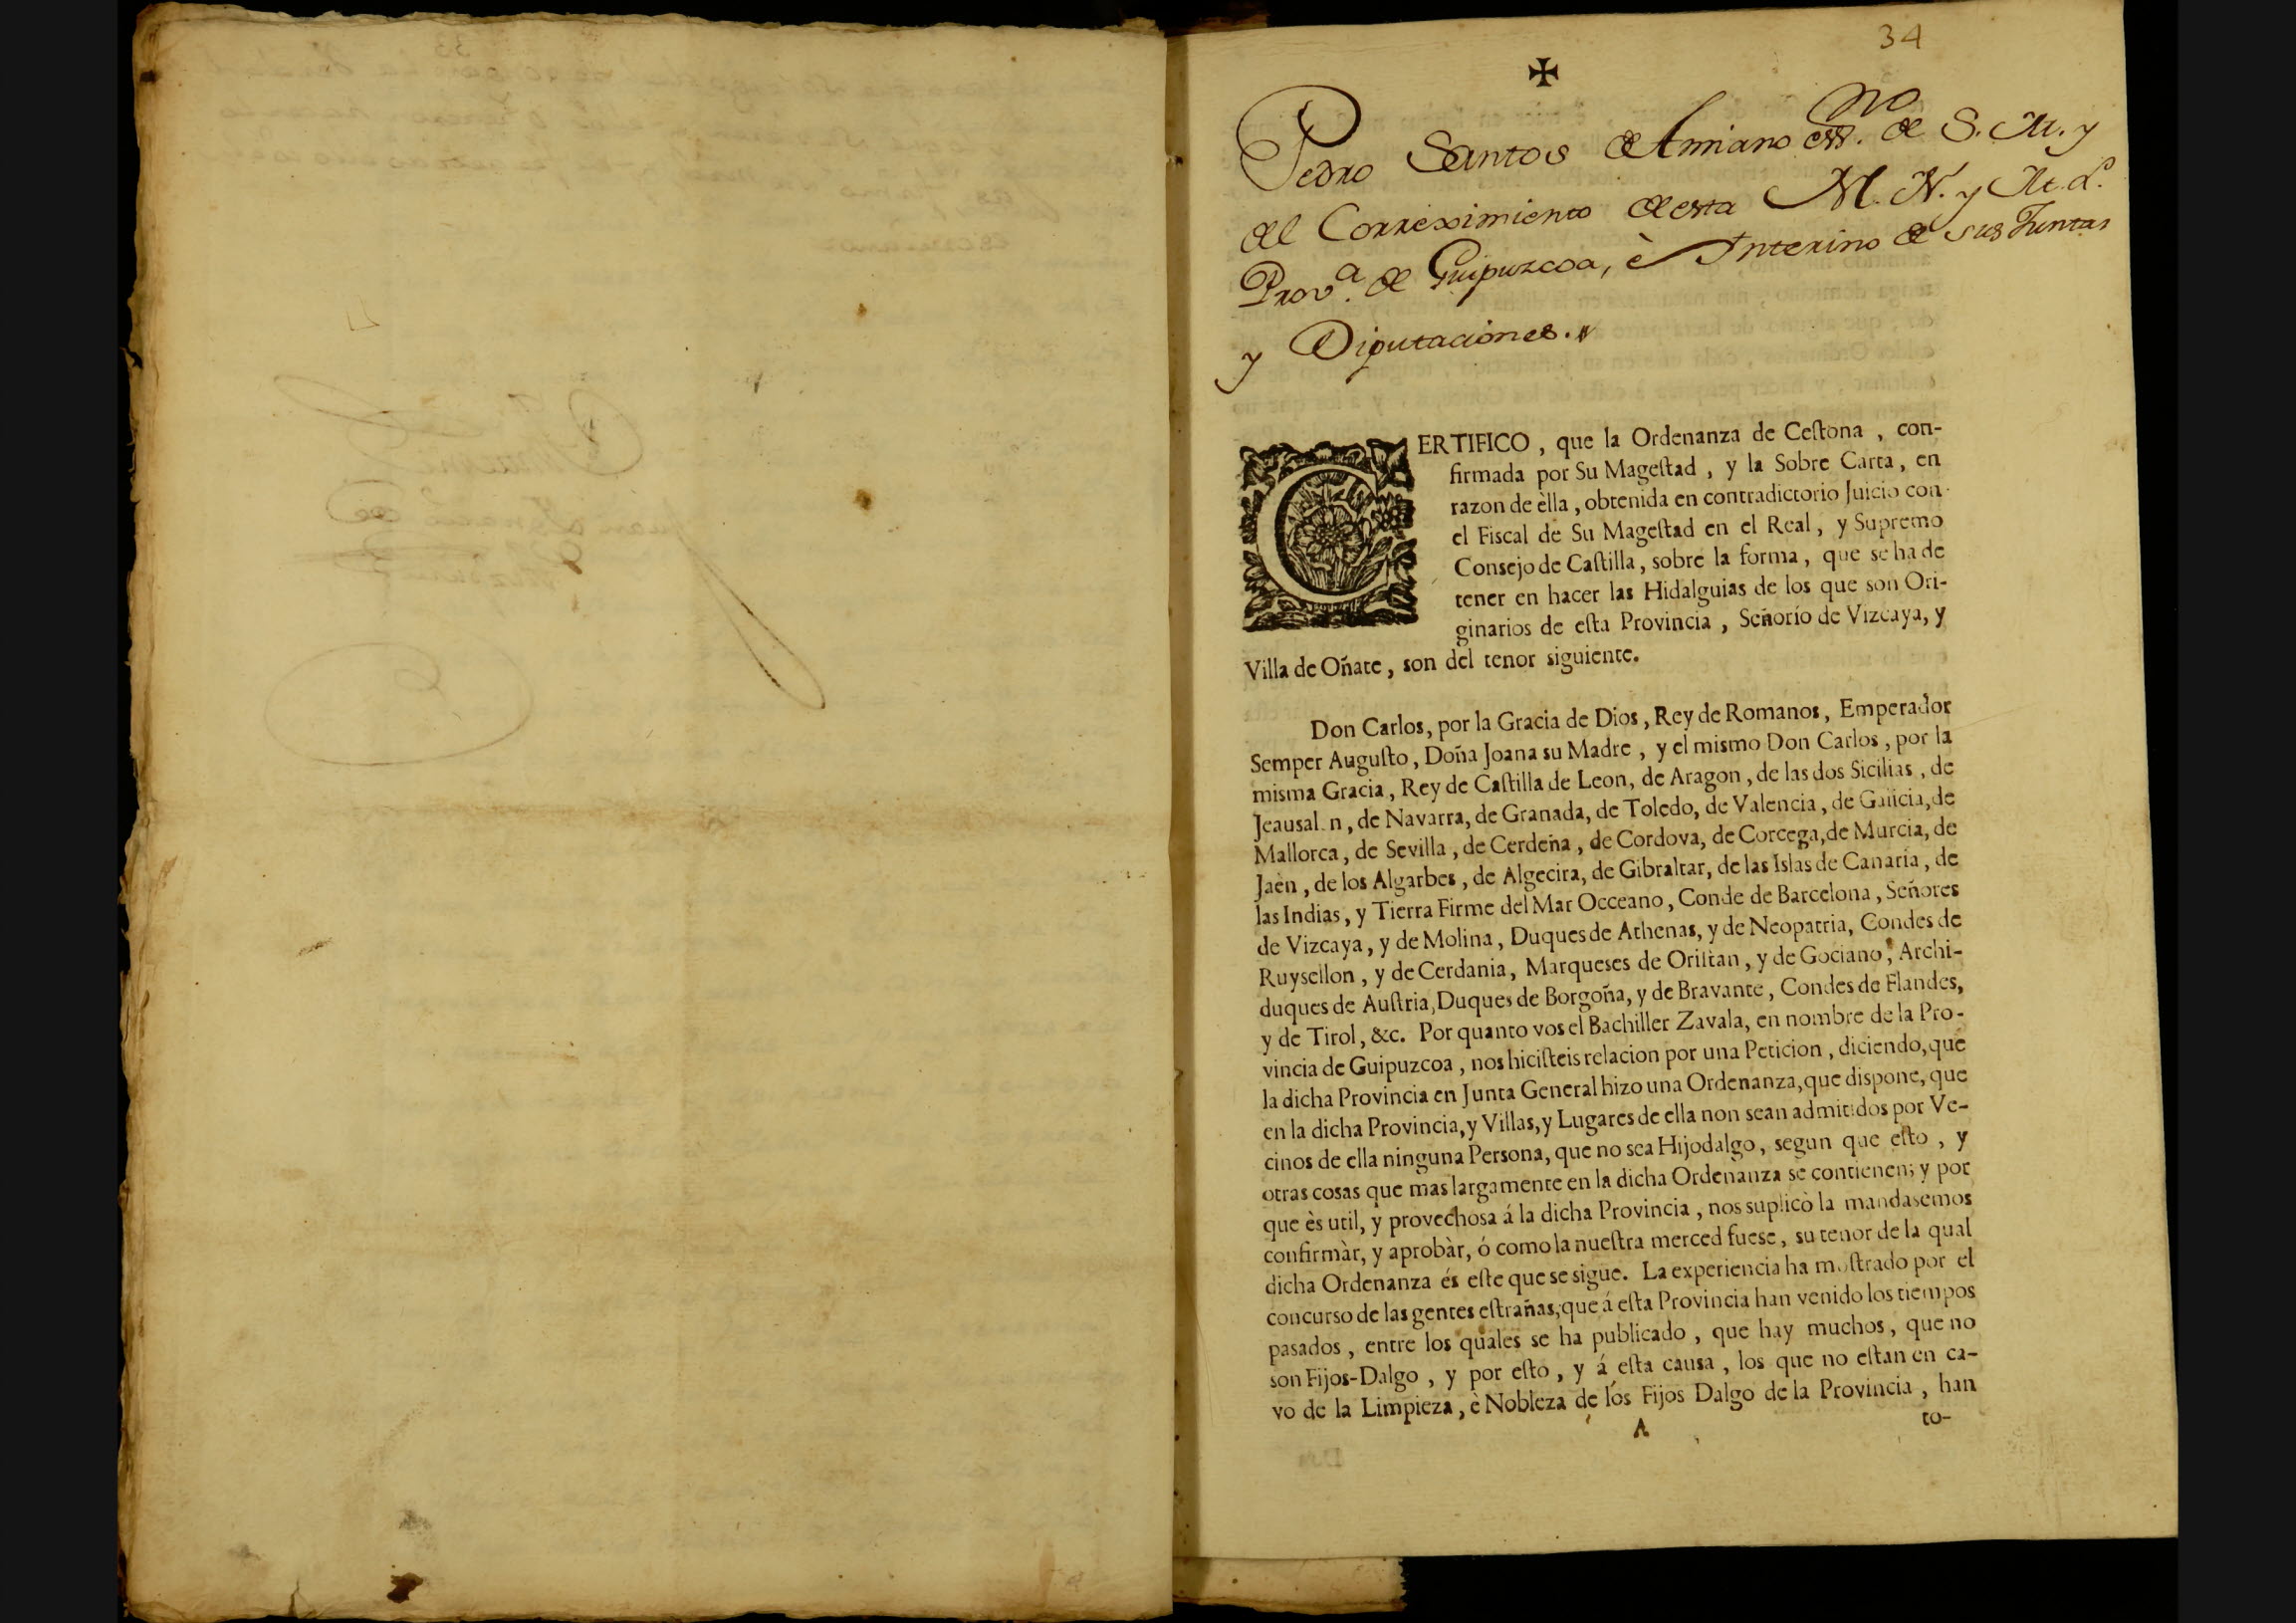 34
✠
Pedro Santos de Amiano essno. de S. M. y
del Correximiento de esta M. N. y M. L.
Prova. de Guipuzcoa, è Interino de sus Juntas
y Diputaciones.
CERTIFICO , que la Ordenanza de Ceſtona , con-
firmada por Su Mageſtad , y la Sobre Carta , en
razon de èlla , obtenida en contradictorio Juicio con
el Fiscal de Su Mageſtad en el Real , y Supremo
Consejo de Caſtilla , sobre la forma , que se ha de
tener en hacer las Hidalguias de los que son Ori-
ginarios de eſta Provincia , Señorío de Vizcaya, y
Villa de Oñate , son del tenor siguiente.
Don Carlos, por la Gracia de Dios , Rey de Romanos , Emperador
Semper Auguſto , Doña Joana su Madre , y el mismo Don Carlos , por la
misma Gracia , Rey de Caſtilla de Leon, de Aragon , de las dos Sicilias , de
Jeausal n , de Navarra, de Granada, de Toledo, de Valencia , de Galicia, de
Mallorca , de Sevilla , de Cerdeña , de Cordova, de Corcega, de Murcia, de
Jaèn , de los Algarbes , de Algecira, de Gibraltar, de las Islas de Canaria , de
las Indias , y Tierra Firme del Mar Occeano , Conde de Barcelona , Señores
de Vizcaya , y de Molina , Duques de Athenas, y de Neopatria, Condes de
Ruysellon , y de Cerdania , Marqueses de Oriſtan , y de Gociano , Archi-
duques de Auſtria, Duques de Borgoña, y de Bravante , Condes de Flandes,
y de Tirol , &c. Por quanto vos el Bachiller Zavala, en nombre de la Pro-
vincia de Guipuzcoa , nos hiciſteis relacion por una Peticion , diciendo, que
la dicha Provincia en Junta General hizo una Ordenanza, que dispone, que
en la dicha Provincia, y Villas, y Lugares de ella non sean admitidos por Ve-
cinos de ella ninguna Persona, que no sea Hijodalgo , segun que eſto , y
otras cosas que mas largamente en la dicha Ordenanza se contienen; y por
que ès util, y provechosa á la dicha Provincia , nos suplicò la mandasemos
confirmàr, y aprobàr, ó como la nueſtra merced fuese , su tenor de la qual
dicha Ordenanza és eſte que se sigue. La experiencia ha moſtrado por el
concurso de las gentes eſtrañas, que á eſta Provincia han venido los tiempos
pasados , entre los quales se ha publicado , que hay muchos , que no
son Fijos-Dalgo , y por eſto , y á eſta causa , los que no eſtan en ca-
vo de la Limpieza , è Nobleza de los Fijos Dalgo de la Provincia , han
A
to-